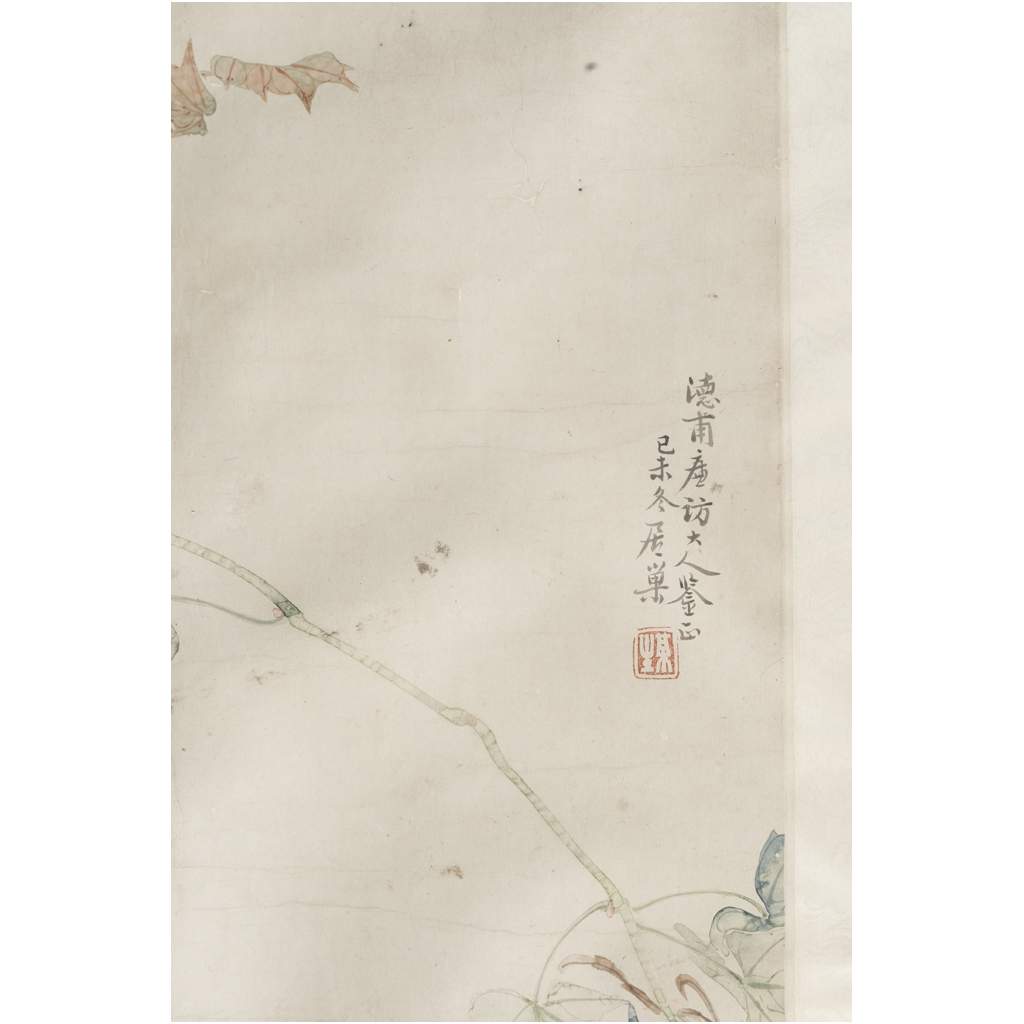 德甫廉訪大人鑒正
己未冬居巢